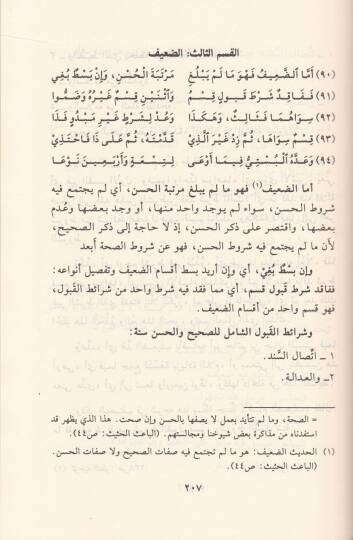 القسم الثالث: الضعيف
(٩٠) أَمَّا الضَّعِيفُ فَهْوَ مَا لَمْ يَبْلُغِ مَرْتَبَةَ الْحُسْنِ، وَإِنْ بَسْطٌ بُغِي
(٩١) فَفَاقِدٌ شَرْطَ قَبُولٍ قِسْمُ وَاثْنَيْنِ قِسْمٌ غَيْرُهُ وَضَمُّوا
(٩٢) سِوَاهُمَا فَثَالِثٌ، وَهَكَذَا وَعُدْ لِشَرْطٍ غَيْرِ مَبْدُوٍّ فَذَا
(٩٣) قِسْمٌ سِوَاهَا، ثُمَّ زِدْ غَيْرَ الَّذِيْ قَدَّمْتَهُ، ثُمَّ عَلَى ذَا فَاحْتَذِيْ
(٩٤) وَعَدَّهُ الْبُسْتِيُّ فِيمَا أَوْعَى لِتِسْعَةٍ وَأَرْبَعِينَ نَوْعَا
أما الضعيف(١) فهو ما لم يبلغ مرتبة الحسن، أي لم يجتمع فيه
شروط الحسن، سواء لم يوجد واحد منها، أو وجد بعضها وعُدم
بعضها، واقتصر على ذكر الحسن، إذ لا حاجة إلى ذكر الصحيح،
لأن ما لم يجتمع فيه شروط الحسن، فهو عن شروط الصحة أبعد
وإن بسْطٌ بُغِيْ، أي وإن أريد بسط أقسام الضعيف وتفصيل أنواعه:
ففاقد شرط قبول قسم، أي مما فقد فيه شرط واحد من شرائط القَبول،
فهو قسم واحد من أقسام الضعيف.
وشرائط القَبول الشامل للصحيح والحسن ستة:
١ ـ اتِّصال السَّند.
٢ـ والعدالة.
= الصحة، وما لم تتأيد بعمل لا يصفها بالحسن وإن صحت. هذا الذي يظهر قد
استفدناه من مذاكرة بعض شيوخنا ومجالستهم. (الباعث الحثيث: ص٤٤).
(١) الحديث الضعيف: هو ما لم تجتمع فيه صفات الصحيح ولا صفات الحسن.
(الباعث الحثيث: ص٤٤).
٢٠٧